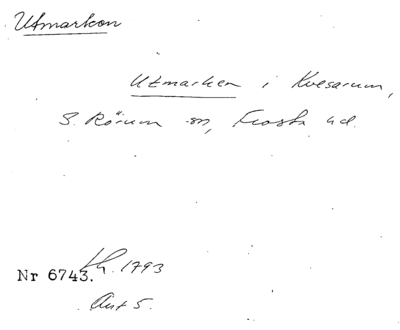 Utmarken
Utmarken i Kvesarum,
S. Rörum sn, Frosta hd.
Nr 6743. Lh. 1793
Akt 5.